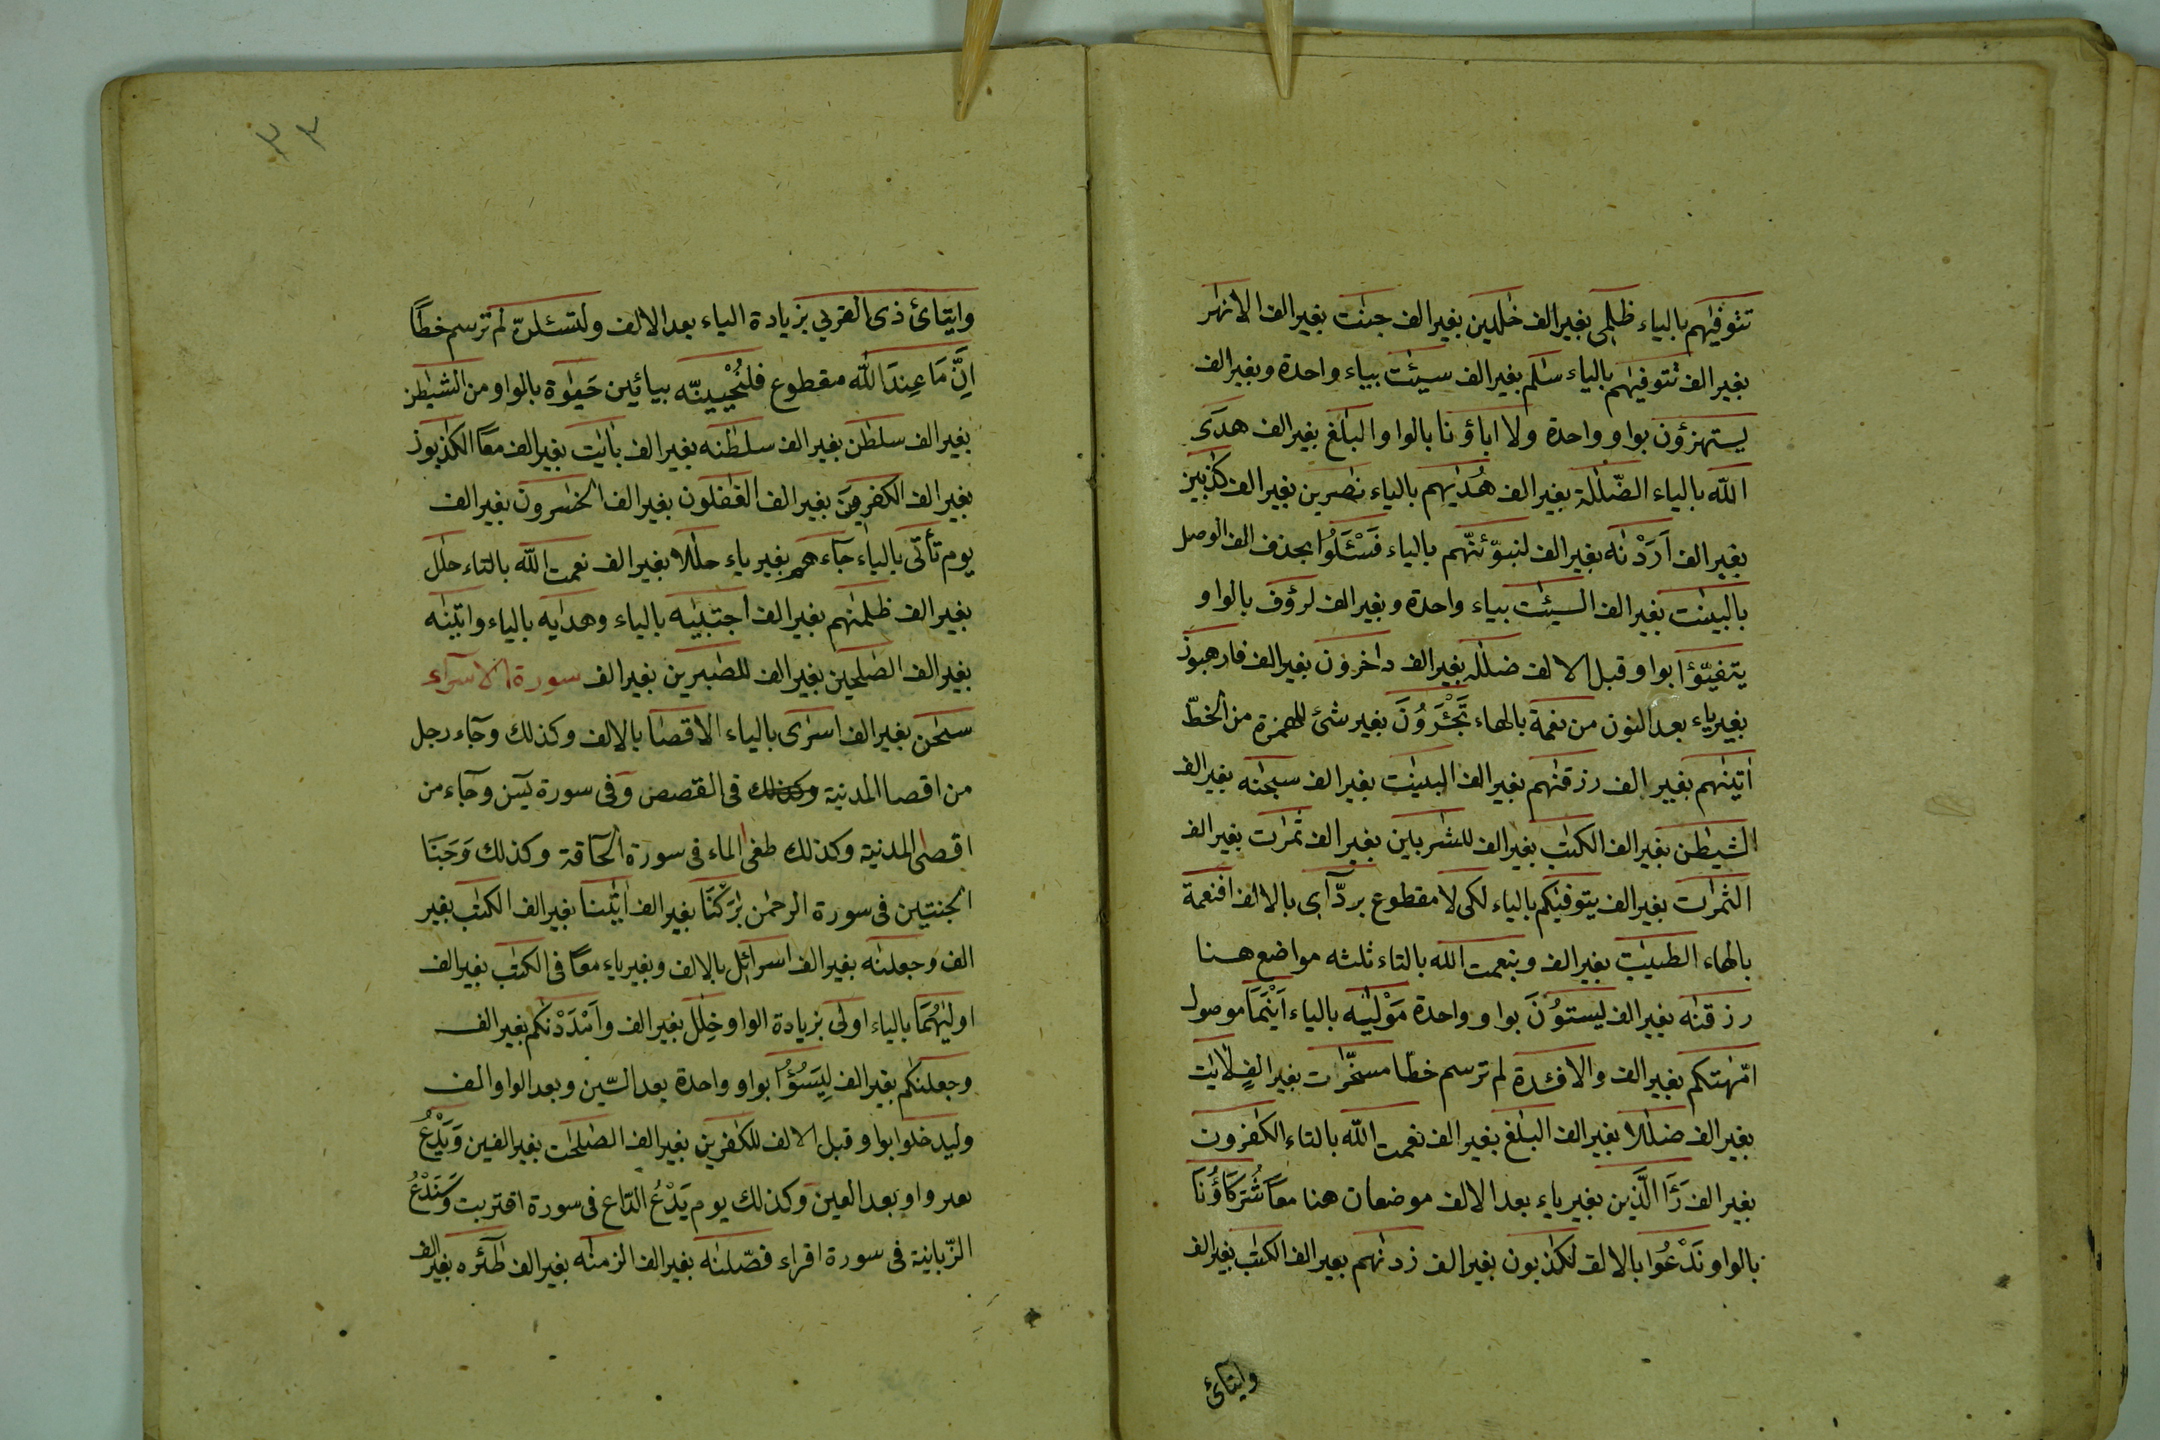 تتوفيهم بالياء ظلمى بغير الف خلدين بغير الف جنت بغير الف الانهر
بغير الف تتوفيهم بالياء سلم بغير الف سيئت بياء واحدة وبغير الف
يستهزؤن بواو واحدة ولا اباؤنا بالواو البلغ بغير الف هدى
الله بالياء الضّللة بغير الف هُديهم بالياء نصرين بغير الف كذبين
بغير الف اَرَدْنه بغير الف لنبوّئنّهم بالياء فَسْئَلُوا بحذف الف الوصل
بالبينت بغير الف السيئت بياء واحدة وبغير الف لرؤف بالواو
يتفيّؤا بواو قبل الالف ضلله بغير الف داخرون بغير الف فارهبون
بغير ياء بعد النون من نعمة بالهاء تَجْئَرُونَ بغير شئ للهمزة من الخطّ
اتينهم بغير الف رزقنهم بغير الف البينت بغير الف سبحنه بغير الف
الشيطن بغير الف الكتب بغير الف للشربين بغير الف ثمرت بغير الف
الثمرت بغير الف يتوفيكم بالياء لكى لا مقطوع بردّآى بالالف افنعمة
بالهاء الطيبت بغير الف وبنعمت الله بالتاء ثلثه مواضع هنا
رزقنه بغير الف ليستوُنَ بواو واحدة مَوْليه بالياء اَيْنَمَا موصول
امّهتكم بغير الف والافئدة لم ترسم خطا مسخّرت بغير الفٍ لايت
بغير الف ضللا بغير الف البلغ بغير الف نعمت الله بالتاء الكفرون
بغير الف رَءَا الَّذين بغير ياء بعد الالف موضعان هنا معا شُرَكَاؤُنَا
بالواو نَدْعُوا بالالف لكذبون بغير الف زدنهم بغير الف الكتب بغير الف
وايتائ
٣٣
وايتائ ذى القربى بزيادة الياء بعد الالف ولتسئلنّ لم ترسم خطاً
اِنَّ مَا عِندَ الله مقطوع فلنُحْيِينّه بيائين حَيوة بالواو من الشيطن
بغير الف سلطن بغير الف سلطنه بغير الف بايت بغير الف معا الكذبون
بغير الف الكفرين بغير الف الغفلون بغير الف الخسرون بغير الف
يوم تأتى بالياء جآءهم بغير ياء حللا بغير الف نعمت الله بالتاء حلل
بغير الف ظلمنهم بغير الف اجتبيه بالياء وهديه بالياء واتينه
بغير الف الصلحين بغير الف للصبرين بغير الف سورة الاسراء
سبحن بغير الف اسرى بالياء الاقصا بالالف وكذلك وجآء رجل
من اقصا المدنية وكذلك فى القصص وفى سورة يسن وجآء من
اقصى المدنية وكذلك طغى الماء فى سورة الحآقة وكذلك وَجَنَا
الجنتين فى سورة الرحمن بركْنَا بغير الف اتينا بغير الف الكتب بغير
الف وجعلنه بغير الف اسرائل بالالف وبغير ياء معاً فى الكتب بغير الف
اوليهُمَا بالياء اولى بزيادة الواو خِلل بغير الف وأمْدَدْنكم بغير الف
وجعلنكم بغير الف لِيَسُؤُا بواو واحدة بعد السّين وبعد الواو الف
وليدخلوا بواو قبل الالف للكفرين بغير الف الصلحت بغير الفين وَيَدْعُ
بغير واو بعد العين وكذلك يوم يَدْعُ الدّاع فى سورة اقتربت وَسَنَدْعُ
الزّبانية فى سورة اقراء فصّلنه بغير الف الزمنه بغير الف طئره بغير الف